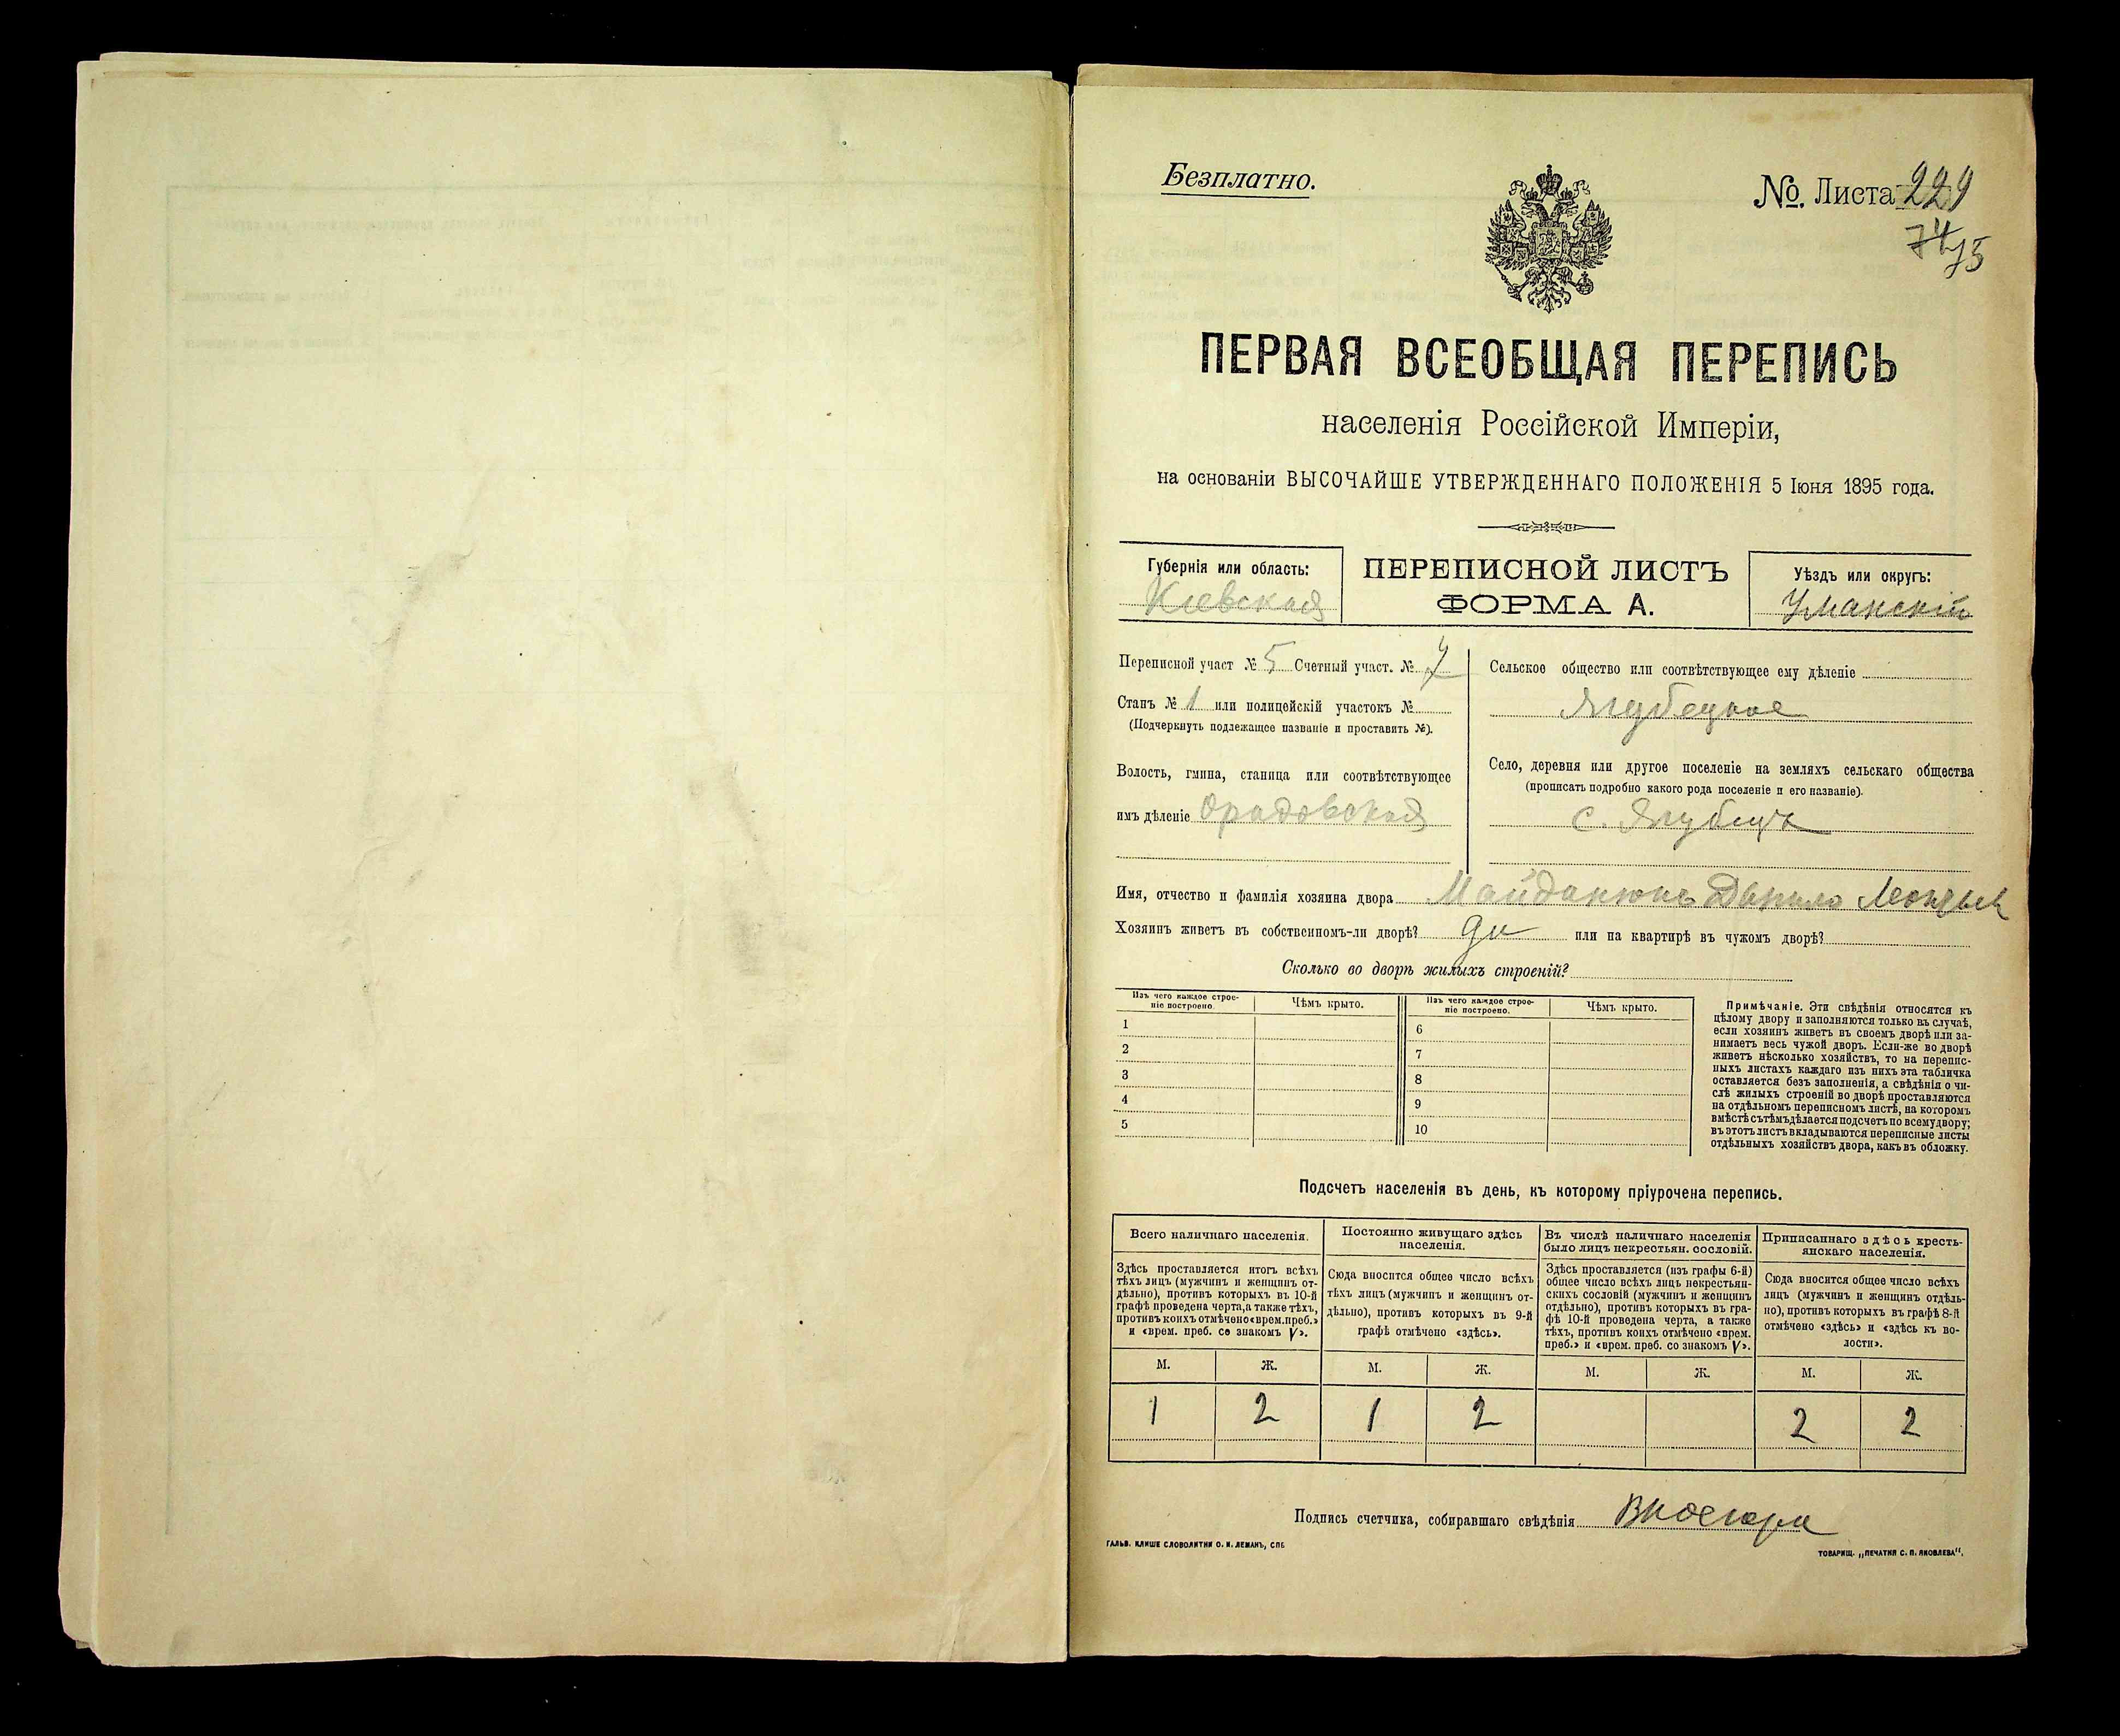 Безплатно.
№. Листа 229
74/75
ПЕРВАЯ ВСЕОБЩАЯ ПЕРЕПИСЬ
населенія Россійской Имперіи,
на основаніи ВЫСОЧАЙШЕ УТВЕРЖДЕННАГО ПОЛОЖЕНІЯ 5 Іюня 1895 года.
Губернія или область:
Кіевская
ПЕРЕПИСНОЙ ЛИСТЪ
ФОРМА А.
Уѣздъ или округъ:
Уманскій
Переписной участ № 5 Счетный участ. № 7
Станъ № 1 или полицейскій участокъ №
(Подчеркнуть подлежащее названіе и проставить №).
Волость, гмина, станица или соотвѣтствующее
имъ дѣленіе Орадовская
Сельское общество или соотвѣтствующее ему дѣленіе
Ягубецкое
Село, деревня или другое поселеніе на земляхъ сельскаго общества
(прописать подробно какого рода поселеніе и его названіе).
с. Ягубецъ
Имя, отчество и фамилія хозяина двора Майданюкъ Данило
Хозяинъ живетъ въ собственномъ-ли дворѣ? да или на квартирѣ въ чужомъ дворѣ?
Сколько во дворѣ жилыхъ строеній?
Изъ чего каждое строе-
ніе построено.
Чѣмъ крыто.
Изъ чего каждое строе-
ніе построено.
Чѣмъ крыто.
1
2
3
4
5
6
7
8
9
10
Примѣчаніе. Эти свѣдѣнія относятся къ
цѣлому двору и заполняются только въ случаѣ,
если хозяинъ живетъ въ своемъ дворѣ или за-
нимаетъ весь чужой дворъ. Если-же во дворѣ
живетъ нѣсколько хозяйствъ, то на перепис-
ныхъ листахъ каждаго изъ нихъ эта табличка
оставляется безъ заполненія, а свѣдѣнія о чи-
слѣ жилыхъ строеній во дворѣ проставляются
на отдѣльномъ переписномъ листѣ, на которомъ
вмѣстѣ съ тѣмъ дѣлается подсчетъ по всему двору;
въ этотъ листъ вкладываются переписные листы
отдѣльныхъ хозяйствъ двора, какъ въ обложку.
Подсчетъ населенія въ день, къ которому пріурочена перепись.
Всего наличнаго населенія.
Здѣсь проставляется итогъ всѣхъ
тѣхъ лицъ (мужчинъ и женщинъ от-
дѣльно), противъ которыхъ въ 10-й
графѣ проведена черта, а также тѣхъ,
противъ коихъ отмѣчено «врем. преб.»
и «врем. преб. со знакомъ V».
Постоянно живущаго здѣсь
населенія.
Сюда вносится общее число всѣхъ
тѣхъ лицъ (мужчинъ и женщинъ от-
дѣльно), противъ которыхъ въ 9-й
графѣ отмѣчено «здѣсь».
Въ числѣ наличнаго населенія
было лицъ некрестьян. сословій.
Здѣсь проставляется (изъ графы 6-й)
общее число всѣхъ лицъ некрестьян-
скихъ сословій (мужчинъ и женщинъ
отдѣльно), противъ которыхъ въ гра-
фѣ 10-й проведена черта, а также
тѣхъ, противъ коихъ отмѣчено «врем.
преб.» и «врем. преб. со знакомъ V».
Приписаннаго здѣсь кресть-
янскаго населенія.
Сюда вносится общее число всѣхъ
лицъ (мужчинъ и женщинъ отдѣль-
но), противъ которыхъ въ графѣ 8-й
отмѣчено «здѣсь» и «здѣсь къ во-
лости».
М. Ж. М. Ж. М. Ж. М. Ж.
1 2 1 2 2 2
Подпись счетчика, собиравшаго свѣдѣнія
ГАЛЬВ. КЛИШЕ СЛОВОЛИТНИ О. И. ЛЕМАНЪ, СПБ
ТОВАРИЩ. „ПЕЧАТНЯ С. П. ЯКОВЛЕВА".